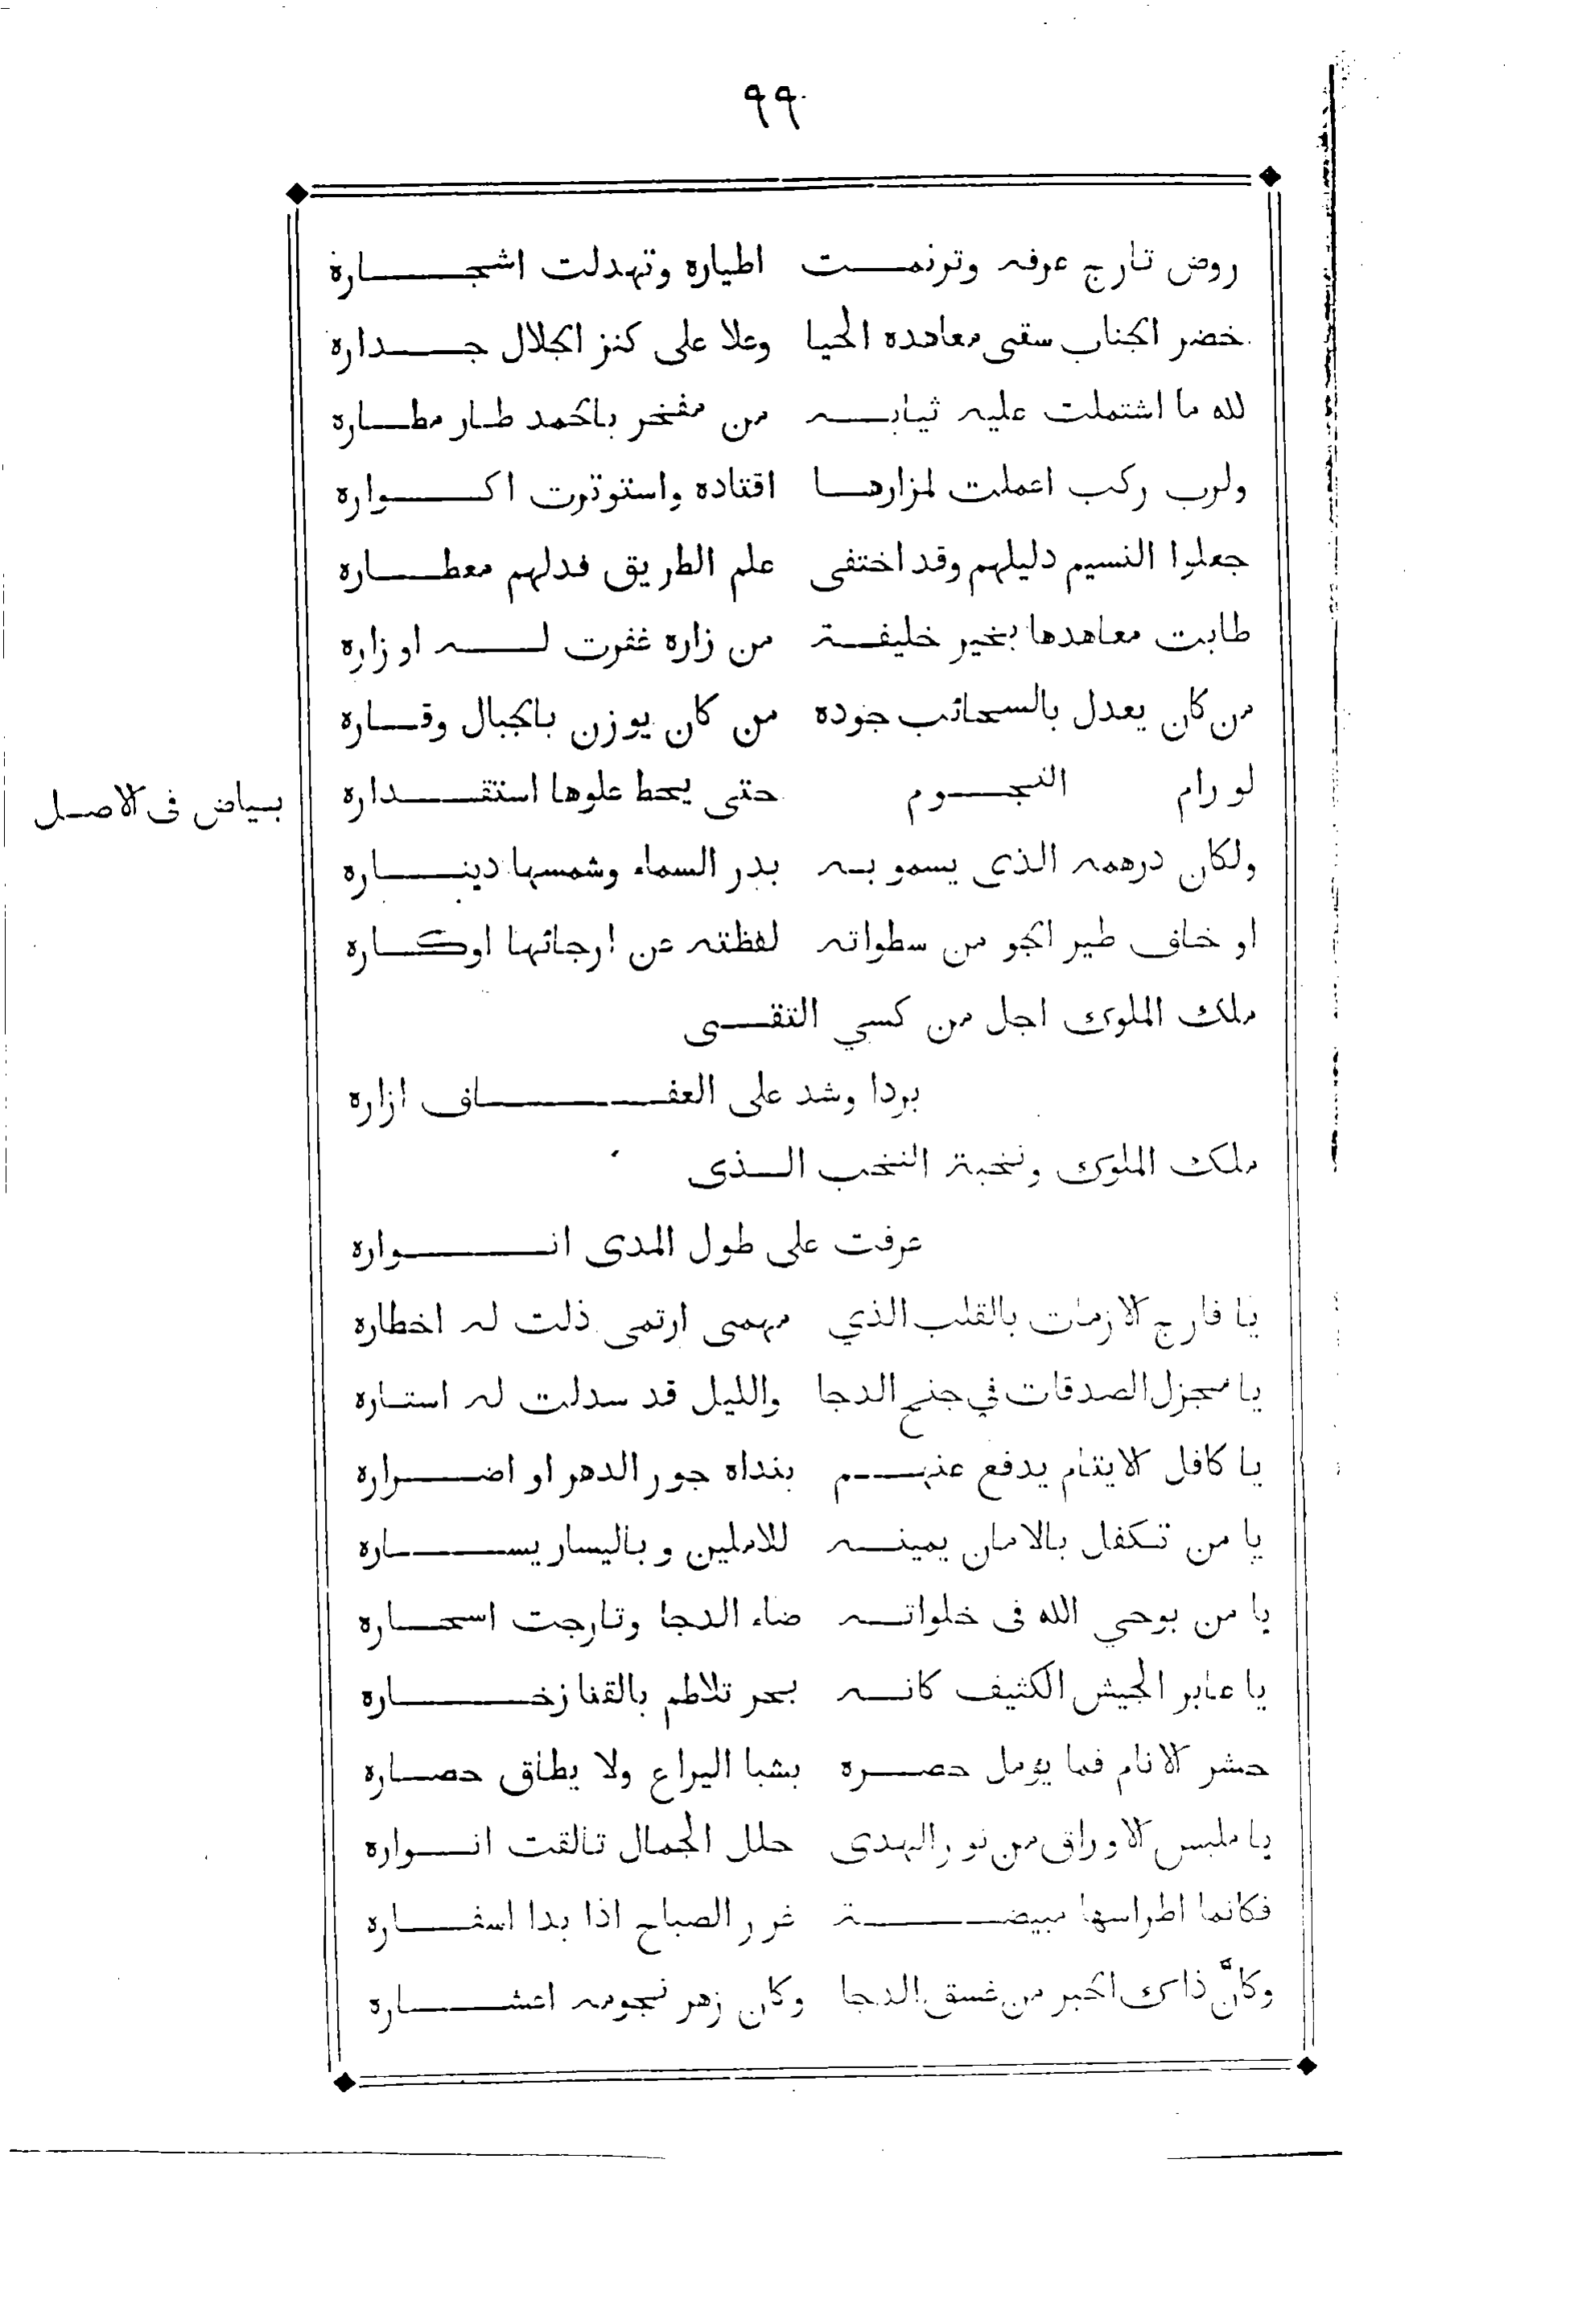 ٩٩
روض تارج عرفه وترنمت اطياره وتهدلت اشجاره
خضر الجناب سقى معاهده الحيا وعلا على كنز الجلال جداره
لله ما اشتملت عليه ثيابه من مفخر بالحمد طار مطاره
ولرب ركب اعملت لمزارها اقتاده واستوترت اكواره
جعلوا النسيم دليلهم وقد اختفى علم الطريق فدلهم معطاره
طابت معاهدها بخير خليفة من زاره غفرت له اوزاره
من كان يعدل بالسحائب جوده من كان يوزن بالجبال وقاره
لو رام النجوم حتى يحط علوها استقداره
بياض فى الاصل
ولكان درهمه الذى يسمو به بدر السماء وشمسها ديناره
او خاف طير الجو من سطواته لفظته عن ارجائها اوكاره
ملك الملوك اجل من كسي التقى
بردا وشد على العفاف ازاره
ملك الملوك ونخبة النخب الذى
عرفت على طول المدى انواره
يا فارج الازمات بالقلب الذي مهمى ارتمى ذلت له اخطاره
يا مجزل الصدقات في جنح الدجا والليل قد سدلت له استاره
يا كافل الايتام يدفع عنهم بنداه جور الدهر او اضراره
يا من تكفل بالامان يمينه للاملين وباليسار يساره
يا من بوحي الله فى خلواته ضاء الدجا وتارجت اسحاره
يا عابر الجيش الكثيف كانه بحر تلاطم بالقنا زخاره
حشر الانام فما يومل حصره بشبا اليراع ولا يطاق حصاره
يا ملبس الاوراق من نور الهدى حلل الجمال تالقت انواره
فكانما اطراسها مبيضة غرر الصباح اذا بدا اسفاره
وكانّ ذاك الحبر من غسق الدجا وكان زهر نجومه اعشاره